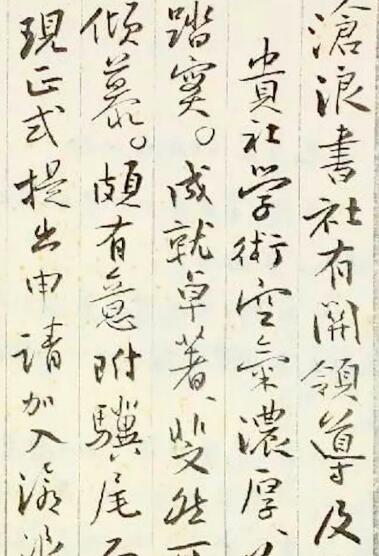 滄浪書社有關領導及
貴社學術空氣濃厚
踏实。成就卓著、斐然
傾慕。頗有意附驥尾
現正式提出申请加入滄浪